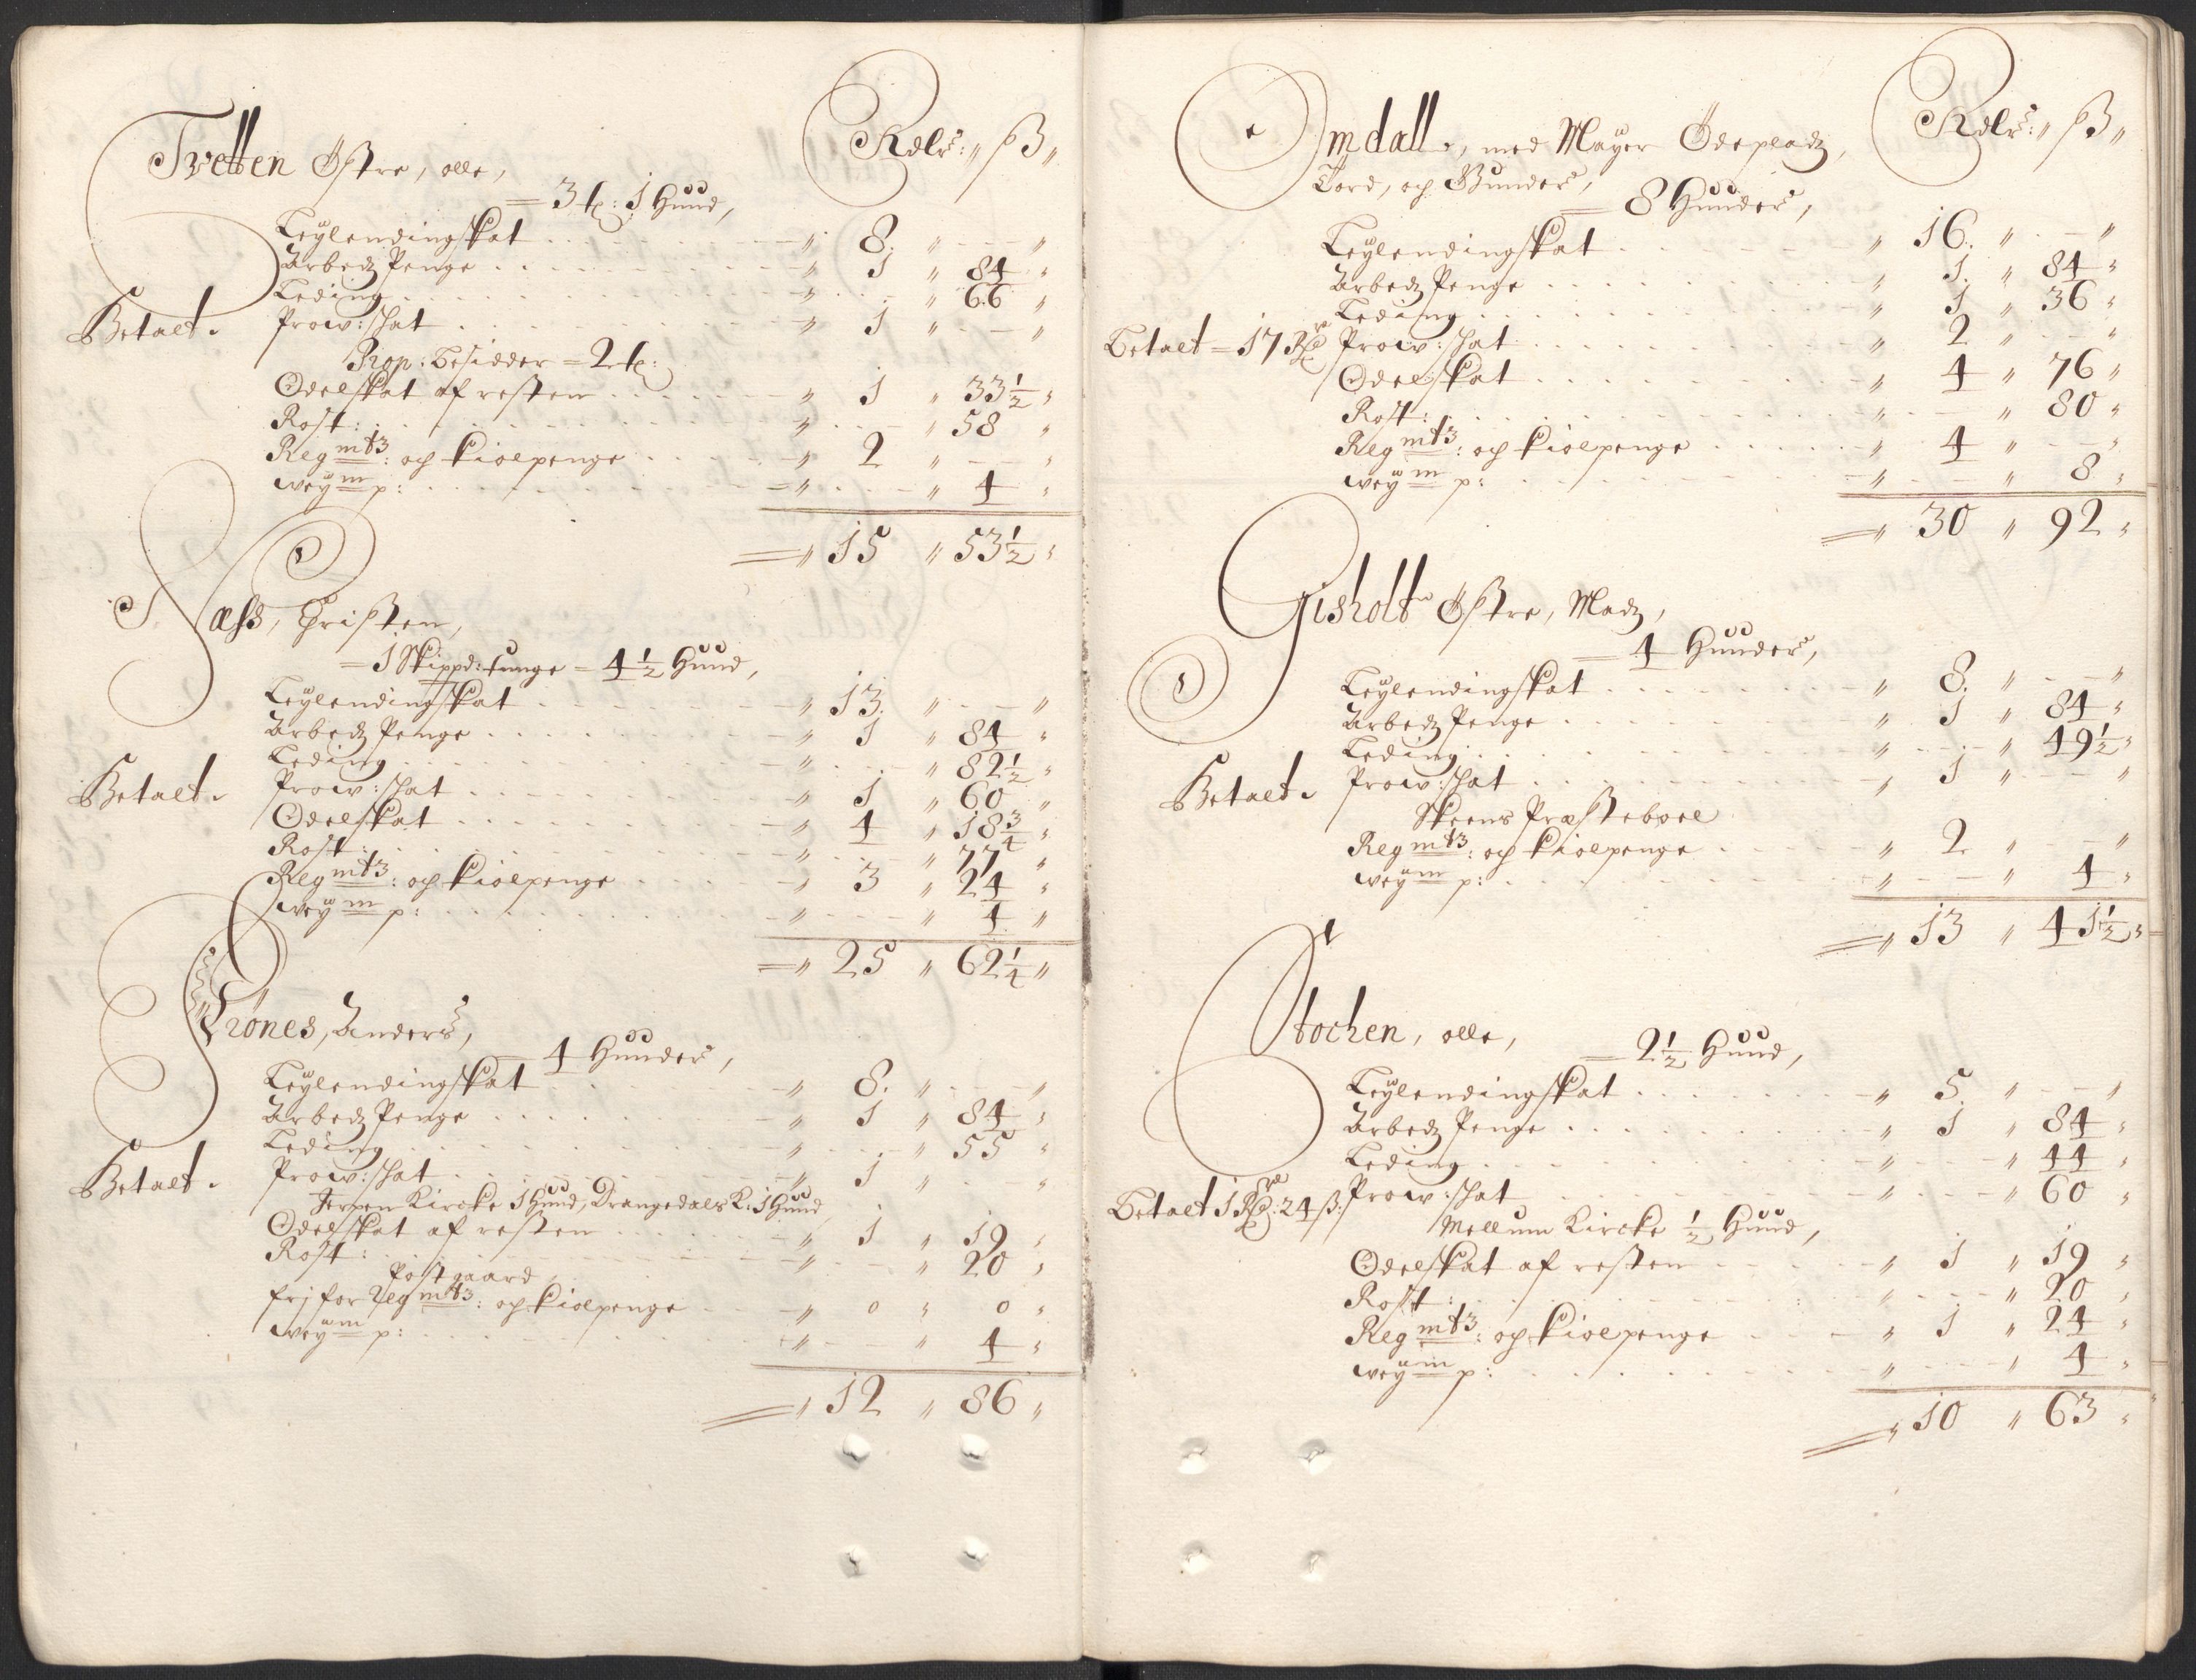 Rdlr: ß
Tvetten Østre, olle,
= 3 t: 1 Huud,
Leylendingskat 8
Arbedz Penge 1 84
Leding 66
Betalt. Prow: schat 1
Prop: Besidder = 2 t:
Odelskat af resten 1 33 1/2
Rost: 58
Reg mt3: og kiolpenge 2
weÿ m p: 4
15 53 1/2
Næss, Christen,
= 1 Skippd: tunge = 4 1/2 Huud,
Leylendingskat 13
Arbedz Penge 1 84
Leding 82 1/2
Betalt. Prow: schat 1 60
Odelskat 4 18 3/4
Rost: 77
Reg mt3: og kiolpenge 3 24
weÿ m p: 4
25 62 1/4
Anders,
= 4 Huuder,
Leylendingskat 8
Arbedz Penge 1 84
Leding 55
Betalt. Prow: schat 1
Kircke 1 Huud, Drangedals K: 1 Huud
Odelskat af resten 1 19
Rost: 20
Postgaard
frj for Reg mt3: og kiolpenge 0 0
weÿ m p: 4
12 86
Rdlr: ß
Omdall, med Mayer Ødepladz,
Tord, og Gunder,
= 8 Huuder,
Leylendingskat 16
Arbedz Penge 1 84
Leding 1 36
Betalt = 17 Rd Prow: schat 2
Odelskat 4 76
Rost: 80
Reg mt3: og kiolpenge 4
weÿ m p: 8
30 92
Gisholt Østre, Madz,
= 4 Huuder,
Leylendingskat 8
Arbedz Penge 1 84
Leding 49 1/2
Betalt. Prow: schat 1
Skeens Præsteboel
Reg mt3: og kiolpenge 2
weÿ m p: 4
13 41 1/2
Stochen, olle,
= 2 1/2 Huud,
Leylendingskat 5
Arbedz Penge 1 84
Leding 44
Betalt 1 Rd: 24 ß: Prow: schat 60
Mellum Kircke 1/2 Huud,
Odelskat af resten 1 19
Rost: 20
Reg mt3: og kiolpenge 1 24
weÿ m p: 4
10 63